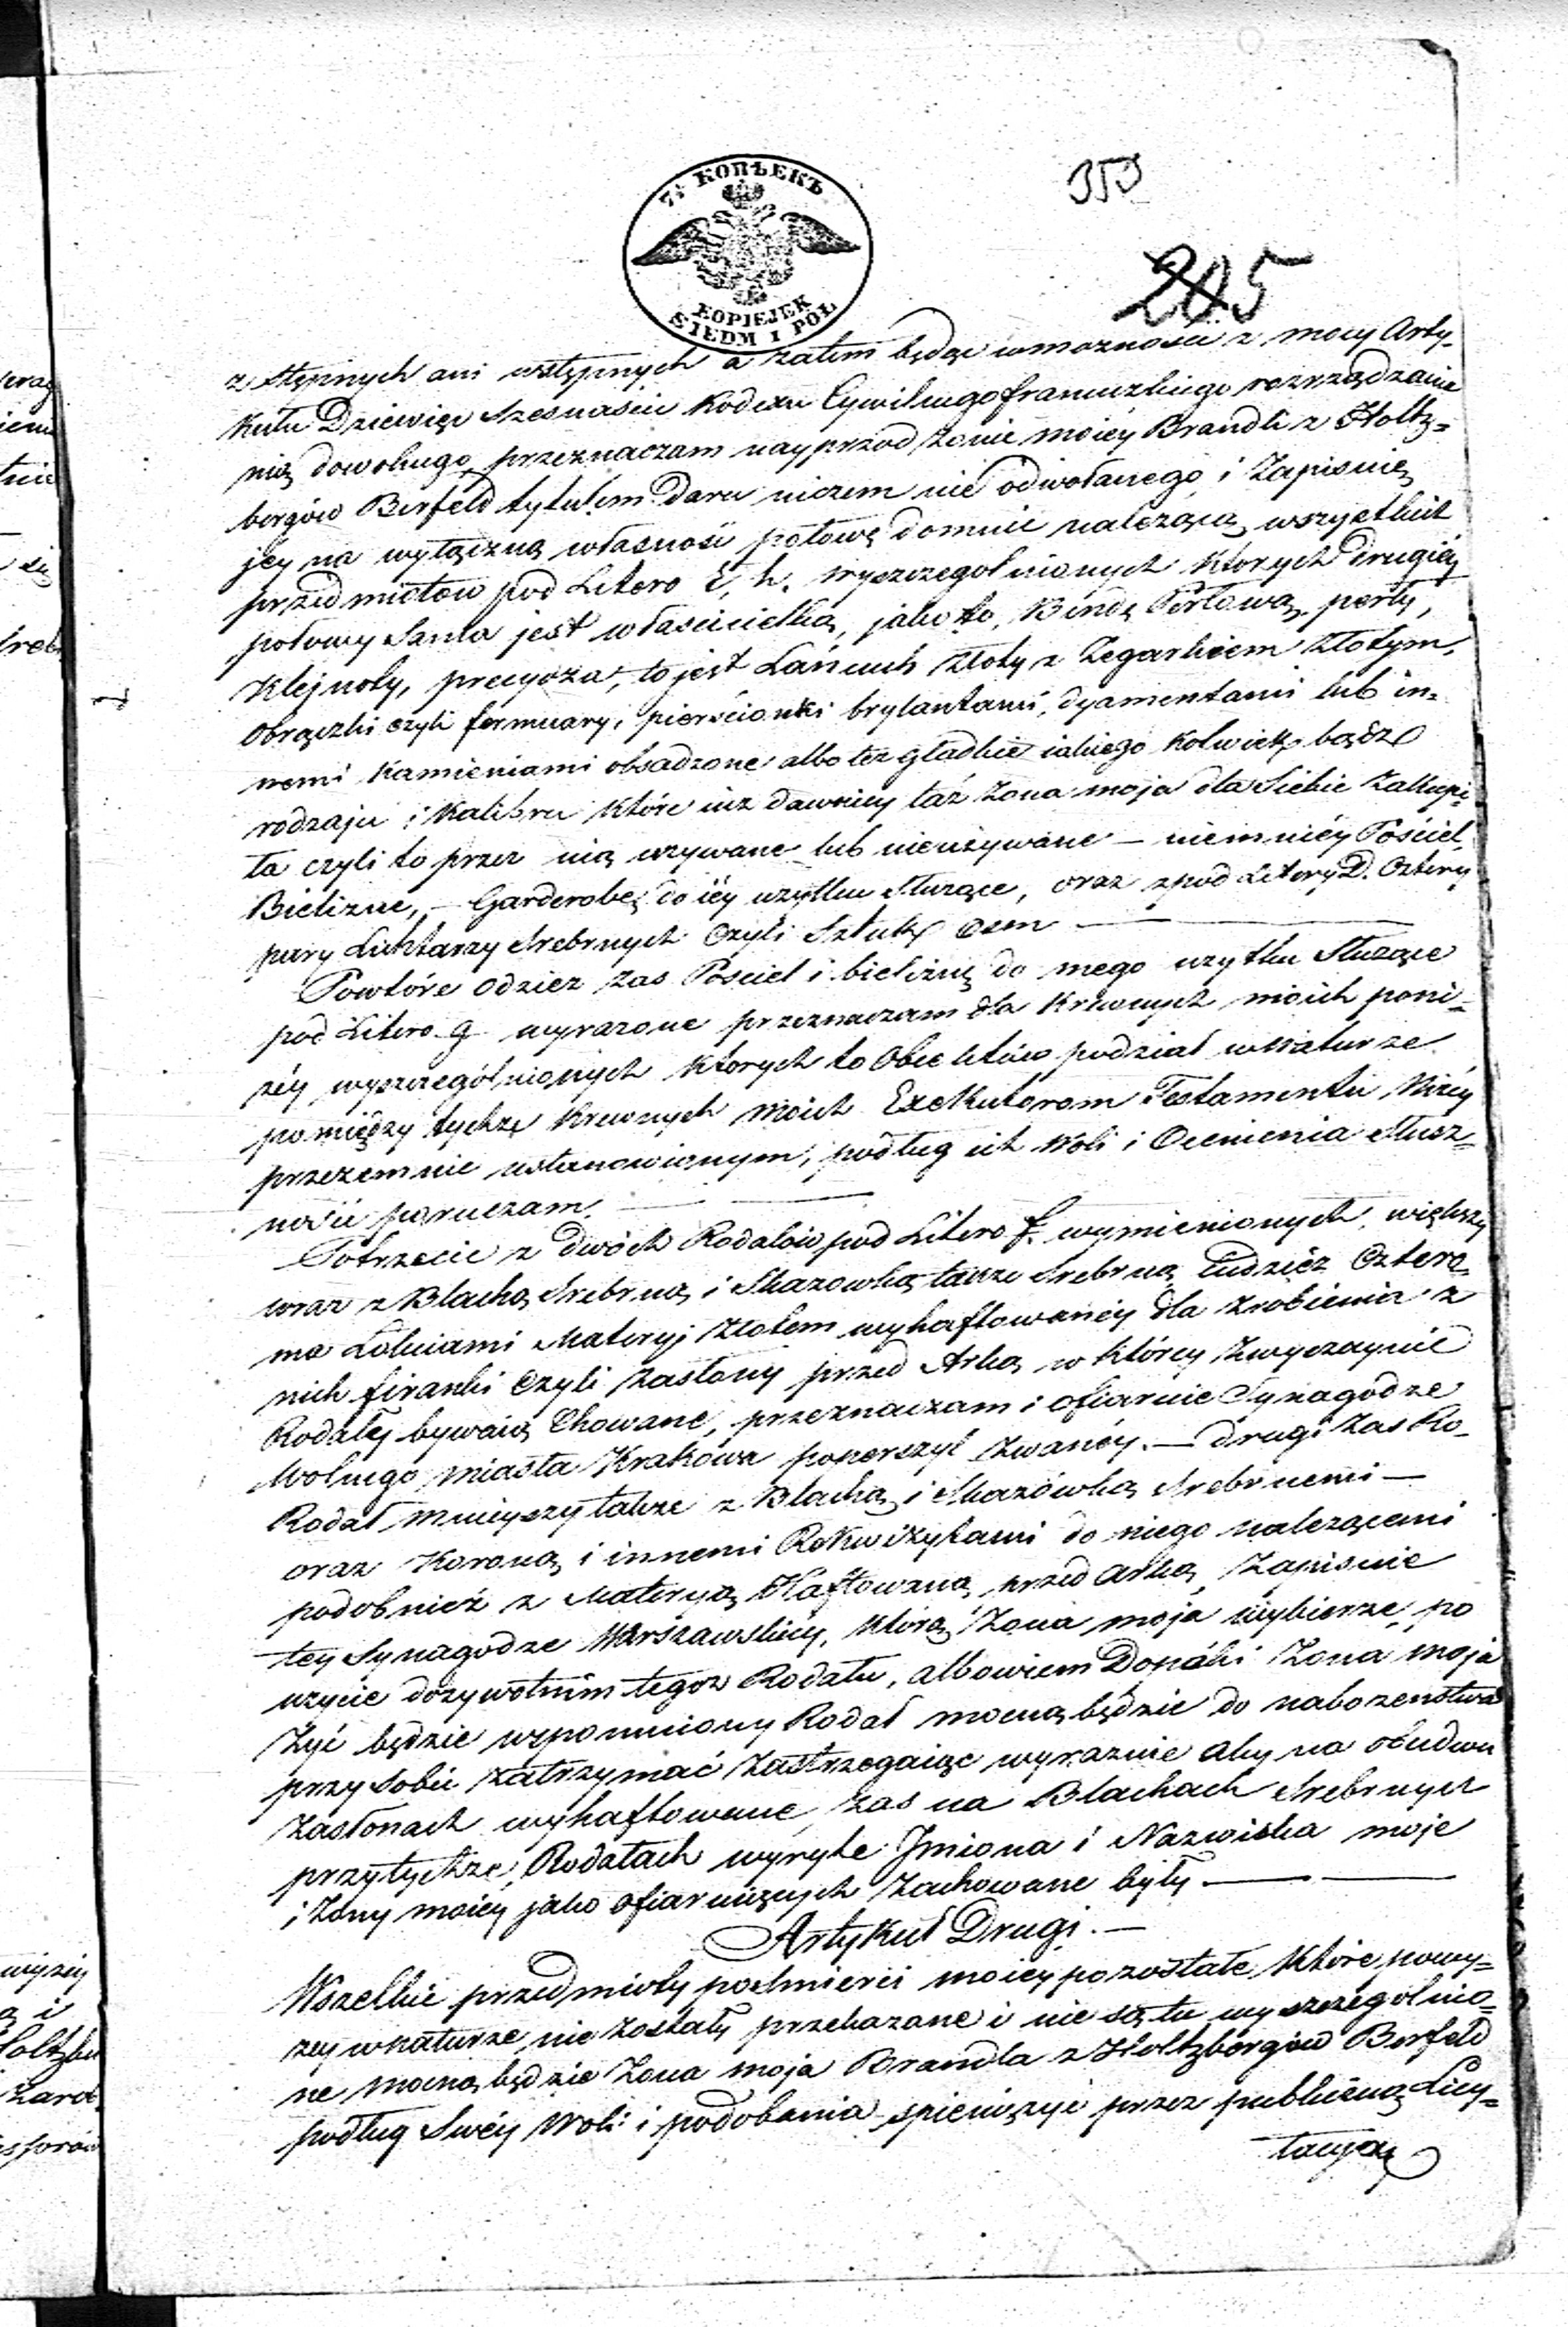 7½ КОПѢЕКЪ
KOPIEJEK
SIEDM I PÓŁ
353
205
zstępnych ani wstępnych a zatem będąc w możności z mocy Arty-
kułu Dziewięć Szesnaście Kodexu Cywilnego francuzkiego rozrządzenia
nią dowolnego, przeznaczam nayprzod żonie moiéy Brandli z Holtz=
bergów Berfeld tytułem Daru niczem nie odwołanego i Zapisuię
jey na wyłączną własność połowę domnie należącą wszystkich
przedmiotow pod Litero e, h. wyszczegolnionych ktorych drugiéy
połowy Sama jest właścicielką, jako to, Bindę Perłową, perły,
Klejnoty, precyoza, to jest Łańcuch złoty z Zegarkiem złotym,
Obrączki czyli fermuary, pierścionki brylantami, dyamentami lub in=
nemi kamieniami obsadzone albo tez gładkie iakiego kolwiek bądz
rodzaju i Kalibru które iuz dawniey taż żona moja dla Siebie zakupi=
ła czyli to przez nią uzywane lub nieużywane — niemniéy Pościel,
Bielizne, — Garderobę do iéy uzytku Służące, oraz zpod Litery D. Cztery
pary Lichtarzy Srebrnych Czyli Sztuk Osm —
Powtóre Odziez zas Posciel i bieliznę do mego uzytku Służące
pod Litero g wyrazone przeznaczam dla Krewnych moich poni-
żéy wyszczególnionych ktorych to Obiektów podział w naturze
pomiędzy tychże Krewnych moich Exekutorom Testamentu, Niżéy
przezemnie ustanowionym, podług ich Woli i Ocenienia Słusz=
ności poruczam. —
Potrzecie z dwóch Rodałów pod Litero f. wymienionych, większy
wraz z Blachą Srebrną i Skazowką takze Srebrną tudzież Cztero-
ma Łokciami Materyi złotem wyhaftowanéy dla zrobienia z
nich firanki Czyli zasłony przed Arką w któréy zwyczaynie
Rodały bywaią Chowane, przeznaczam i ofiaruie Synagodze
Wolnego miasta Krakowa zwanéy. — drugi zas Ro-
Rodał mnieyszy takze z Blachą i Skazówką Srebrnemi —
oraz Koroną i innemi Rekwizytami do niego należącemi
podobnież z Materyą Haftowaną przed Arką, Zapisuie
tey Synagodze Warszawskiey, którą Żona moja wybierze, po
użycie dożywotnim tegoz Rodału, albowiem Dopóki Żona moja
Żyć będzie wspomniony Rodał mocną będzie do nabozenstwa
przy Sobie zatrzymać zastrzegaiąc wyraznie aby na obudwu
zasłonach wyhaftowane, zas na Blachach Srebrnych
przytychże Rodałach wyryte Jmiona i Nazwiska moje
i Żony moiéy jako ofiaruiących Zachowane były. —
Artykuł Drugi. —
Wszelkie przedmioty pośmierci moiéy pozostałe, które powy=
zey w naturze nie zostały przekazane i nie są tu wyszczególnio=
ne mocną będzie Żona moja Brandla z Holtzbergów Berfeld
podług Swéy Woli i podobania spieniężyć przez publiczną Licy=
tacyą